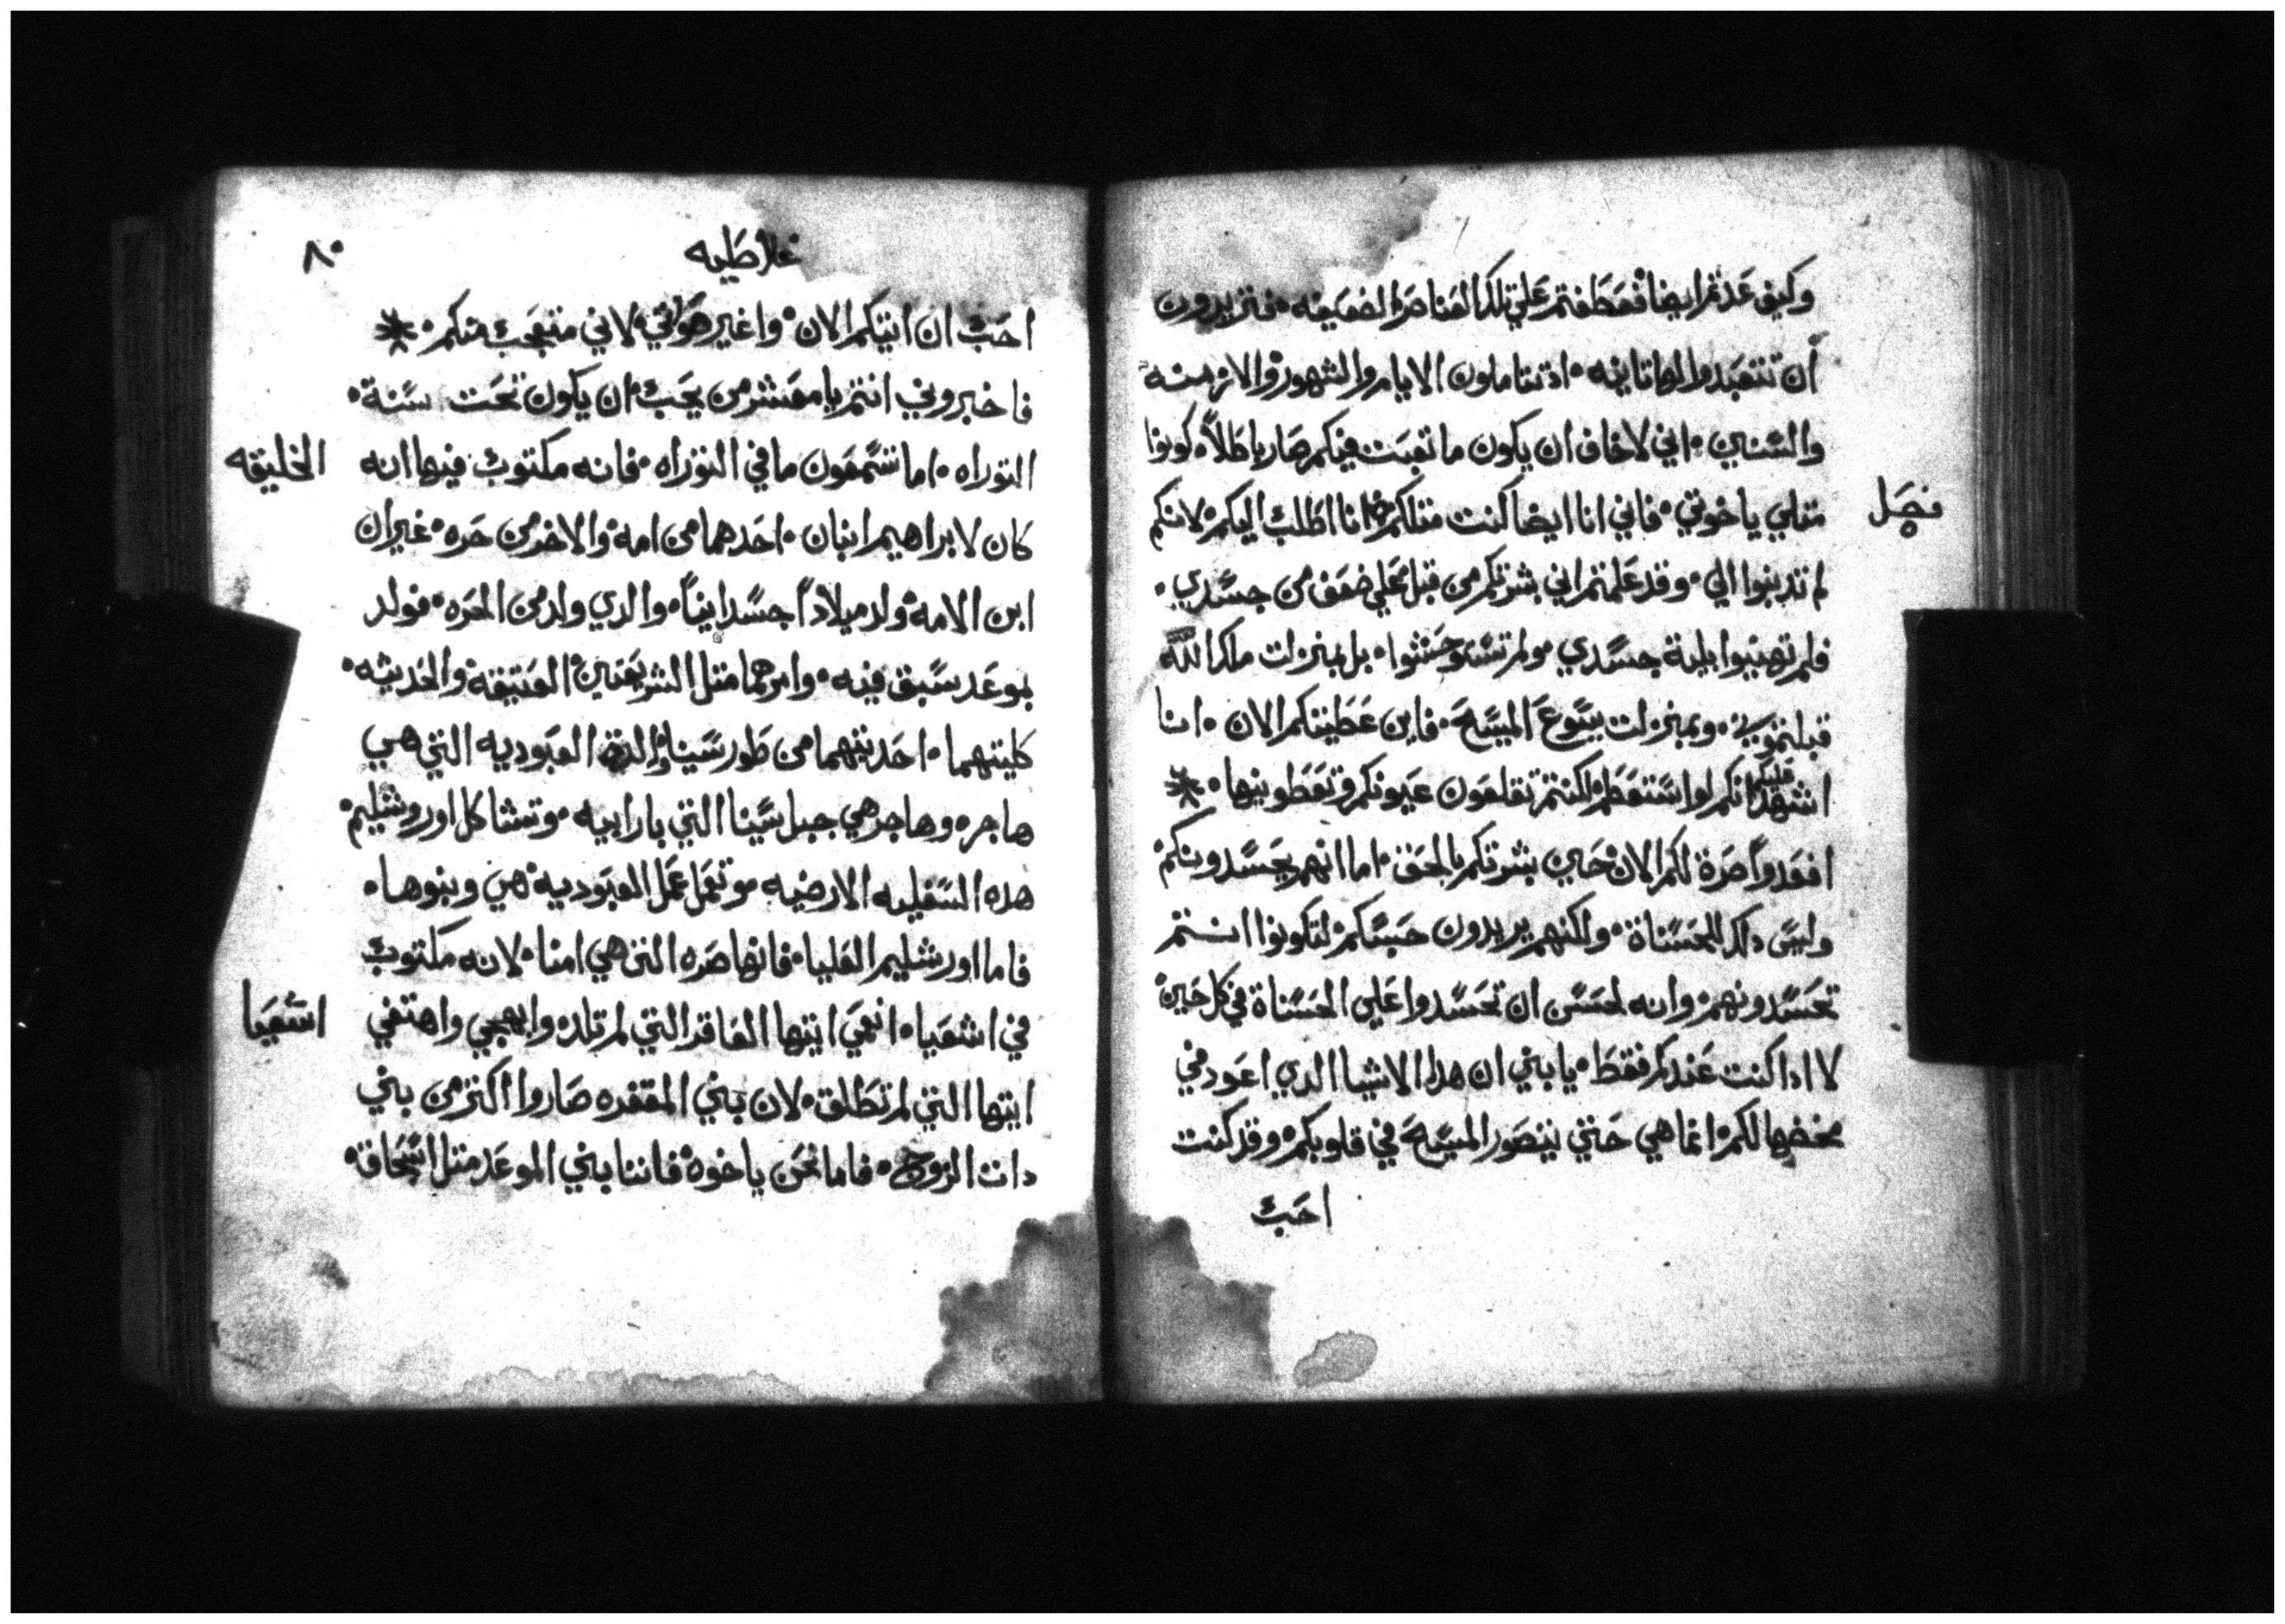 وكيف عدتم ايضا فعطفتم علي تلك العناصر الضعيفه فتريدون
أن تتعبدوا لها تانيه اذ تتاملون الايام والشهور والازمنه
والسنين اني لاخاف ان يكون ما تعبت فيكم صار باطلاً كونوا
فصل
متلي ياخوتي فاني انا ايضا كنت متلكم انا اطلب اليكم لانكم
لم تدنبوا الي وقد علمتم اني بشرتكم من قبل علي ضعف من جسدي
فلم تهينوا بلية جسدي ولم تستوحشوا بل بمنزلت ملاك الله
قبلتموني وبمنزلت يسوع المسيح فاين عطيتكم الان انا
اشهد عليكم انكم لو استقطم لكنتم تقلعون عيونكم وتعطوينها
افعدواً صرة لكم الان حين بشرتكم بالحق اما انهم يحسدونكم
وليس دلك للحسناة ولكنهم يريدون حبسكم لتكونوا انتم
تحسدونهم وانه لحسن ان تحسدوا علي الحسناة في كل حين
لا ادا كنت عندكم فقط يابني ان هدا الاشيا الدي اعود في
مخضها لكم انما هي حتي يتصور المسيح في قلوبكم وقد كنت
احب
غلاطيه
٨٠
احب ان اتيكم الان واغير صوتي لاني متعجب منكم
فاخبروني انتم يا معشر من يحب ان يكون تحت سنة
التوراه اما تسمعون ما في التوراه فانه مكتوب فيها انه
الخليقه
كان لابراهيم ابنان احدهما من امه والاخر من حره غير ان
ابن الامه ولد ميلاداً جسدانياً والدي ولد من الحره فولد
بوعد سبق فيه وامرهما متل الشريعتين العتيقة والحديثه
كليتهما احديتهما من طور سينا والدة العبوديه التي هي
هاجره وهاجر هي جبل سينا التي بارابيه وتشاكل اوروشليم
هده السفليه الارضيه وتعمل عمل العبوديه هي وبنوها
فاما اورشليم العليا فانها حره التي هي امنا لانه مكتوب
في اشعيا انعمي ايتها العاقر التي لم تلد وابهجي واهتفي
اشعيا
ايتها التي لم تطلق لان بني المقفره صاروا اكتر من بني
دات الزوج فاما نحن ياخوه فاننا بني الموعد متل اسحاق